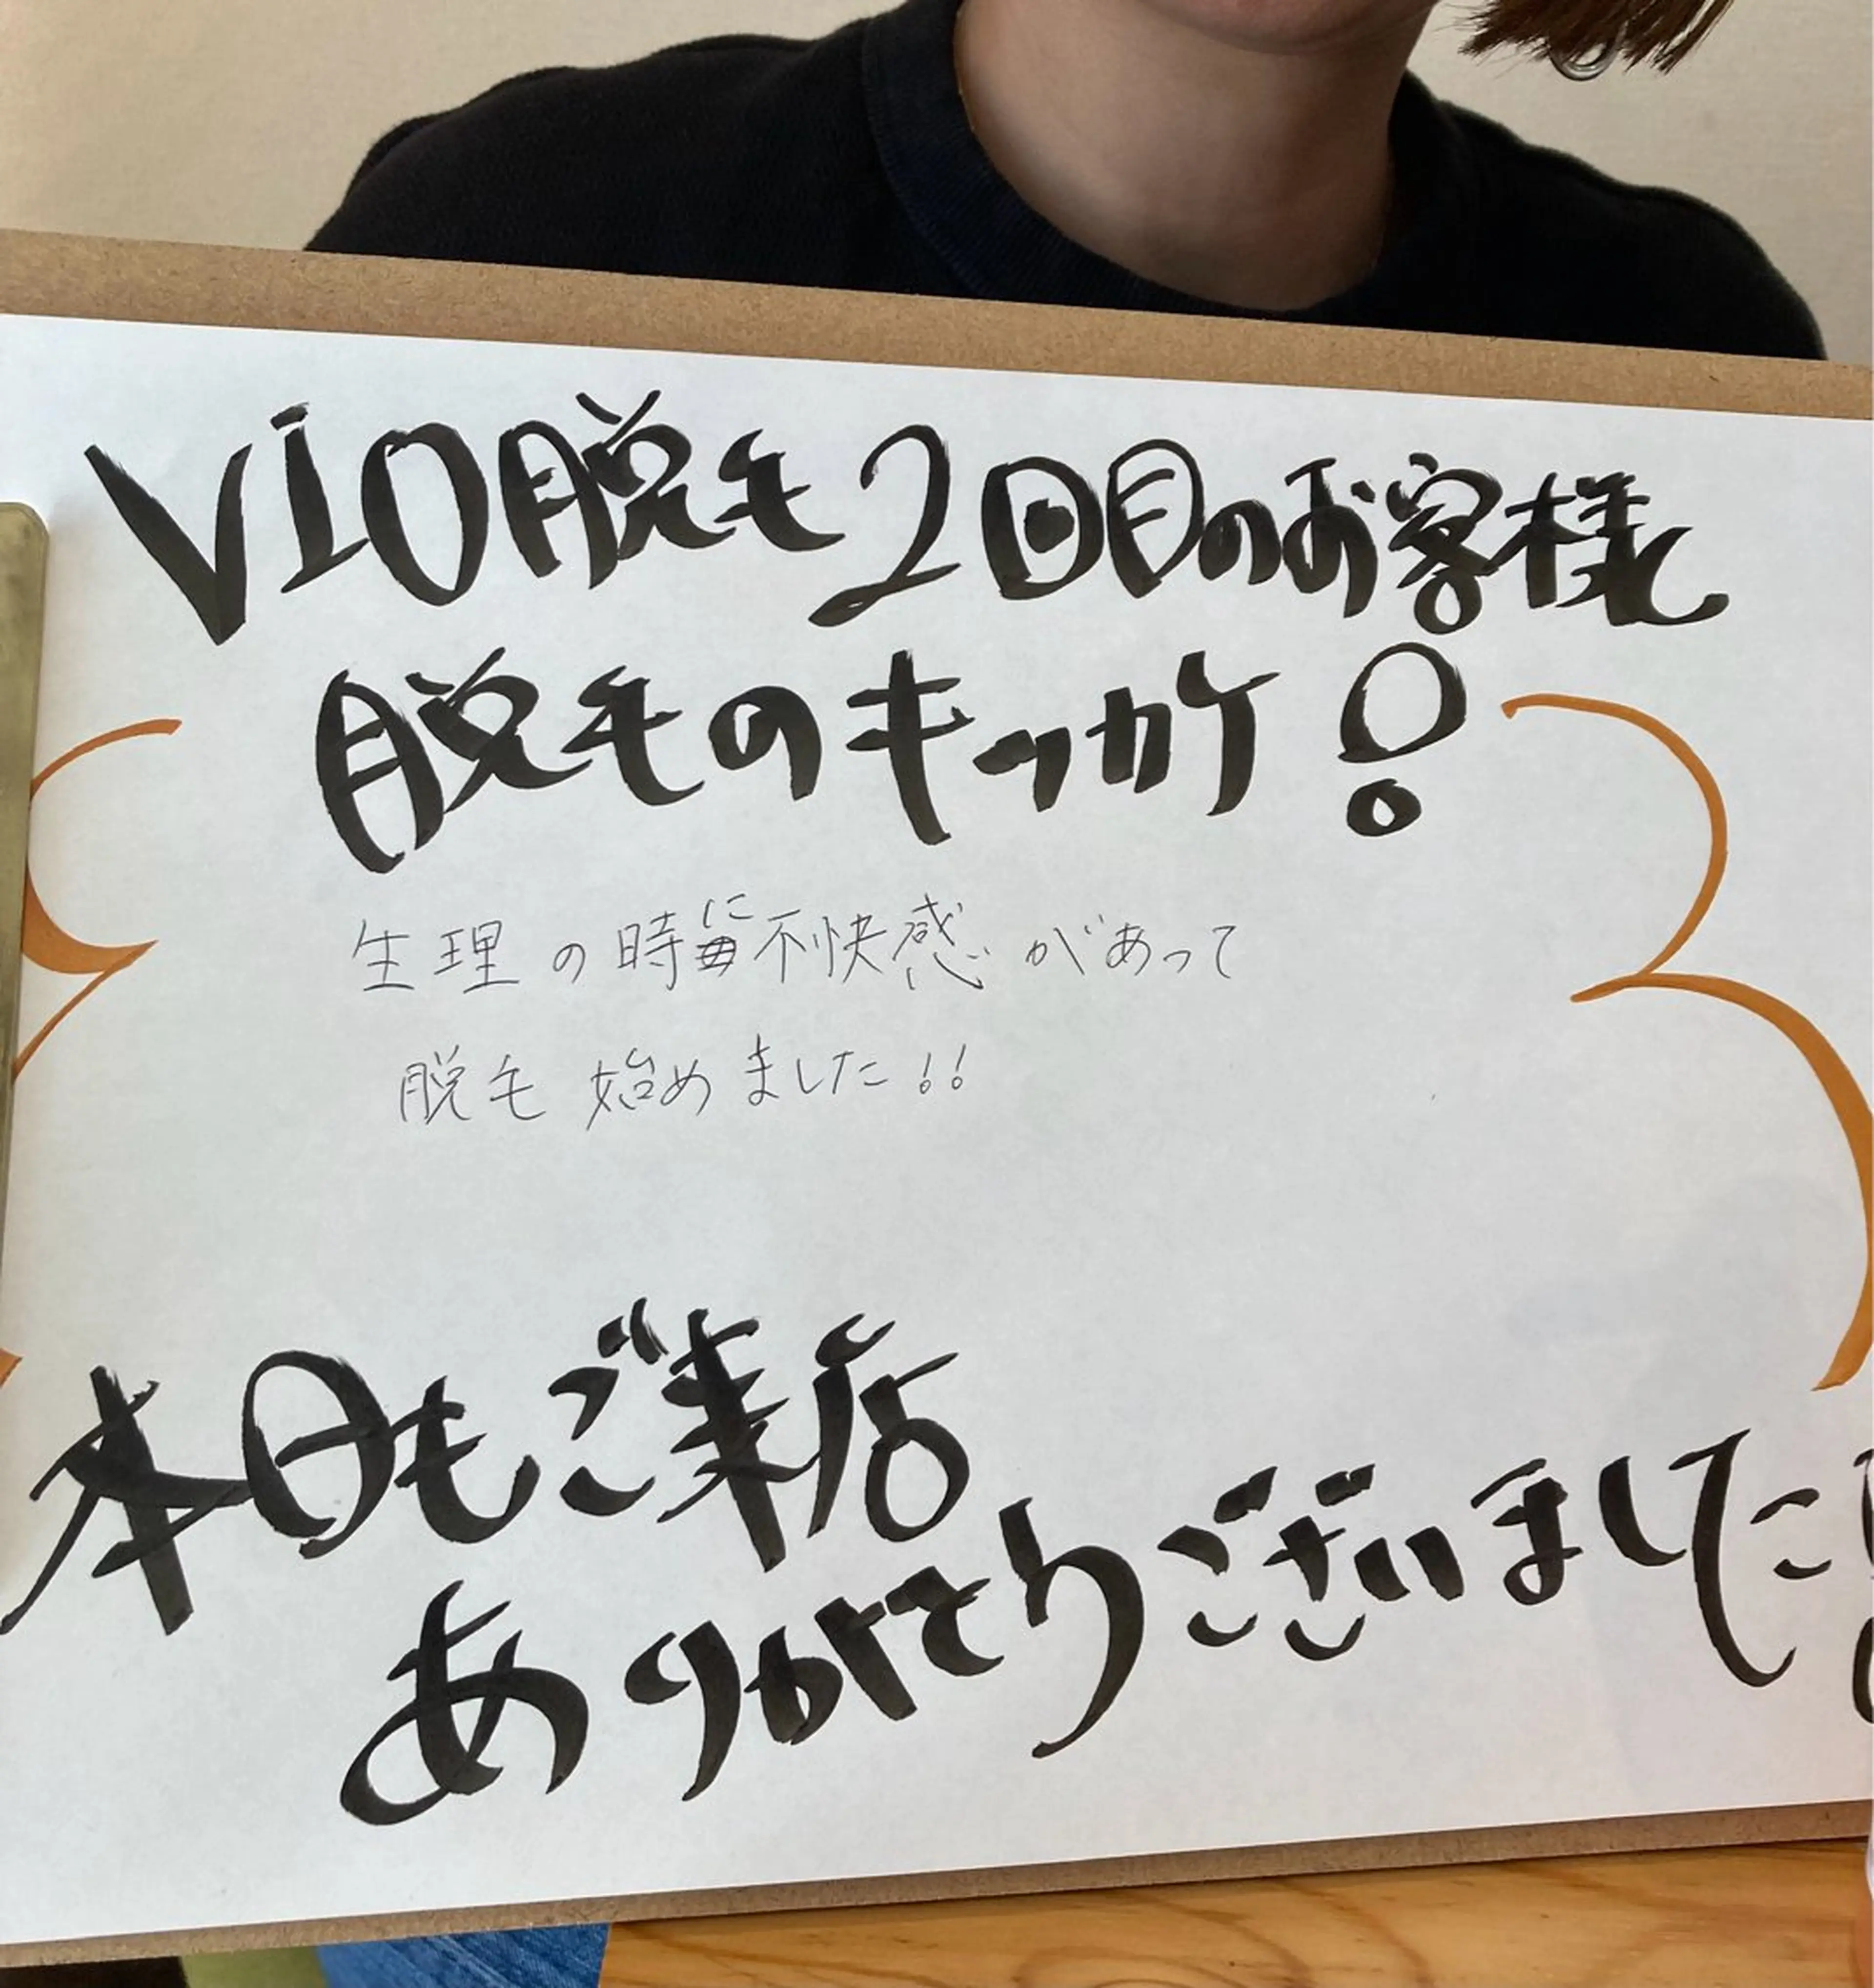 VIO脱毛2回目のお客様
脱毛のキッカケ!
生理の時に不快感があって
脱毛始めました!!
本日もご来店
ありがとうございました!